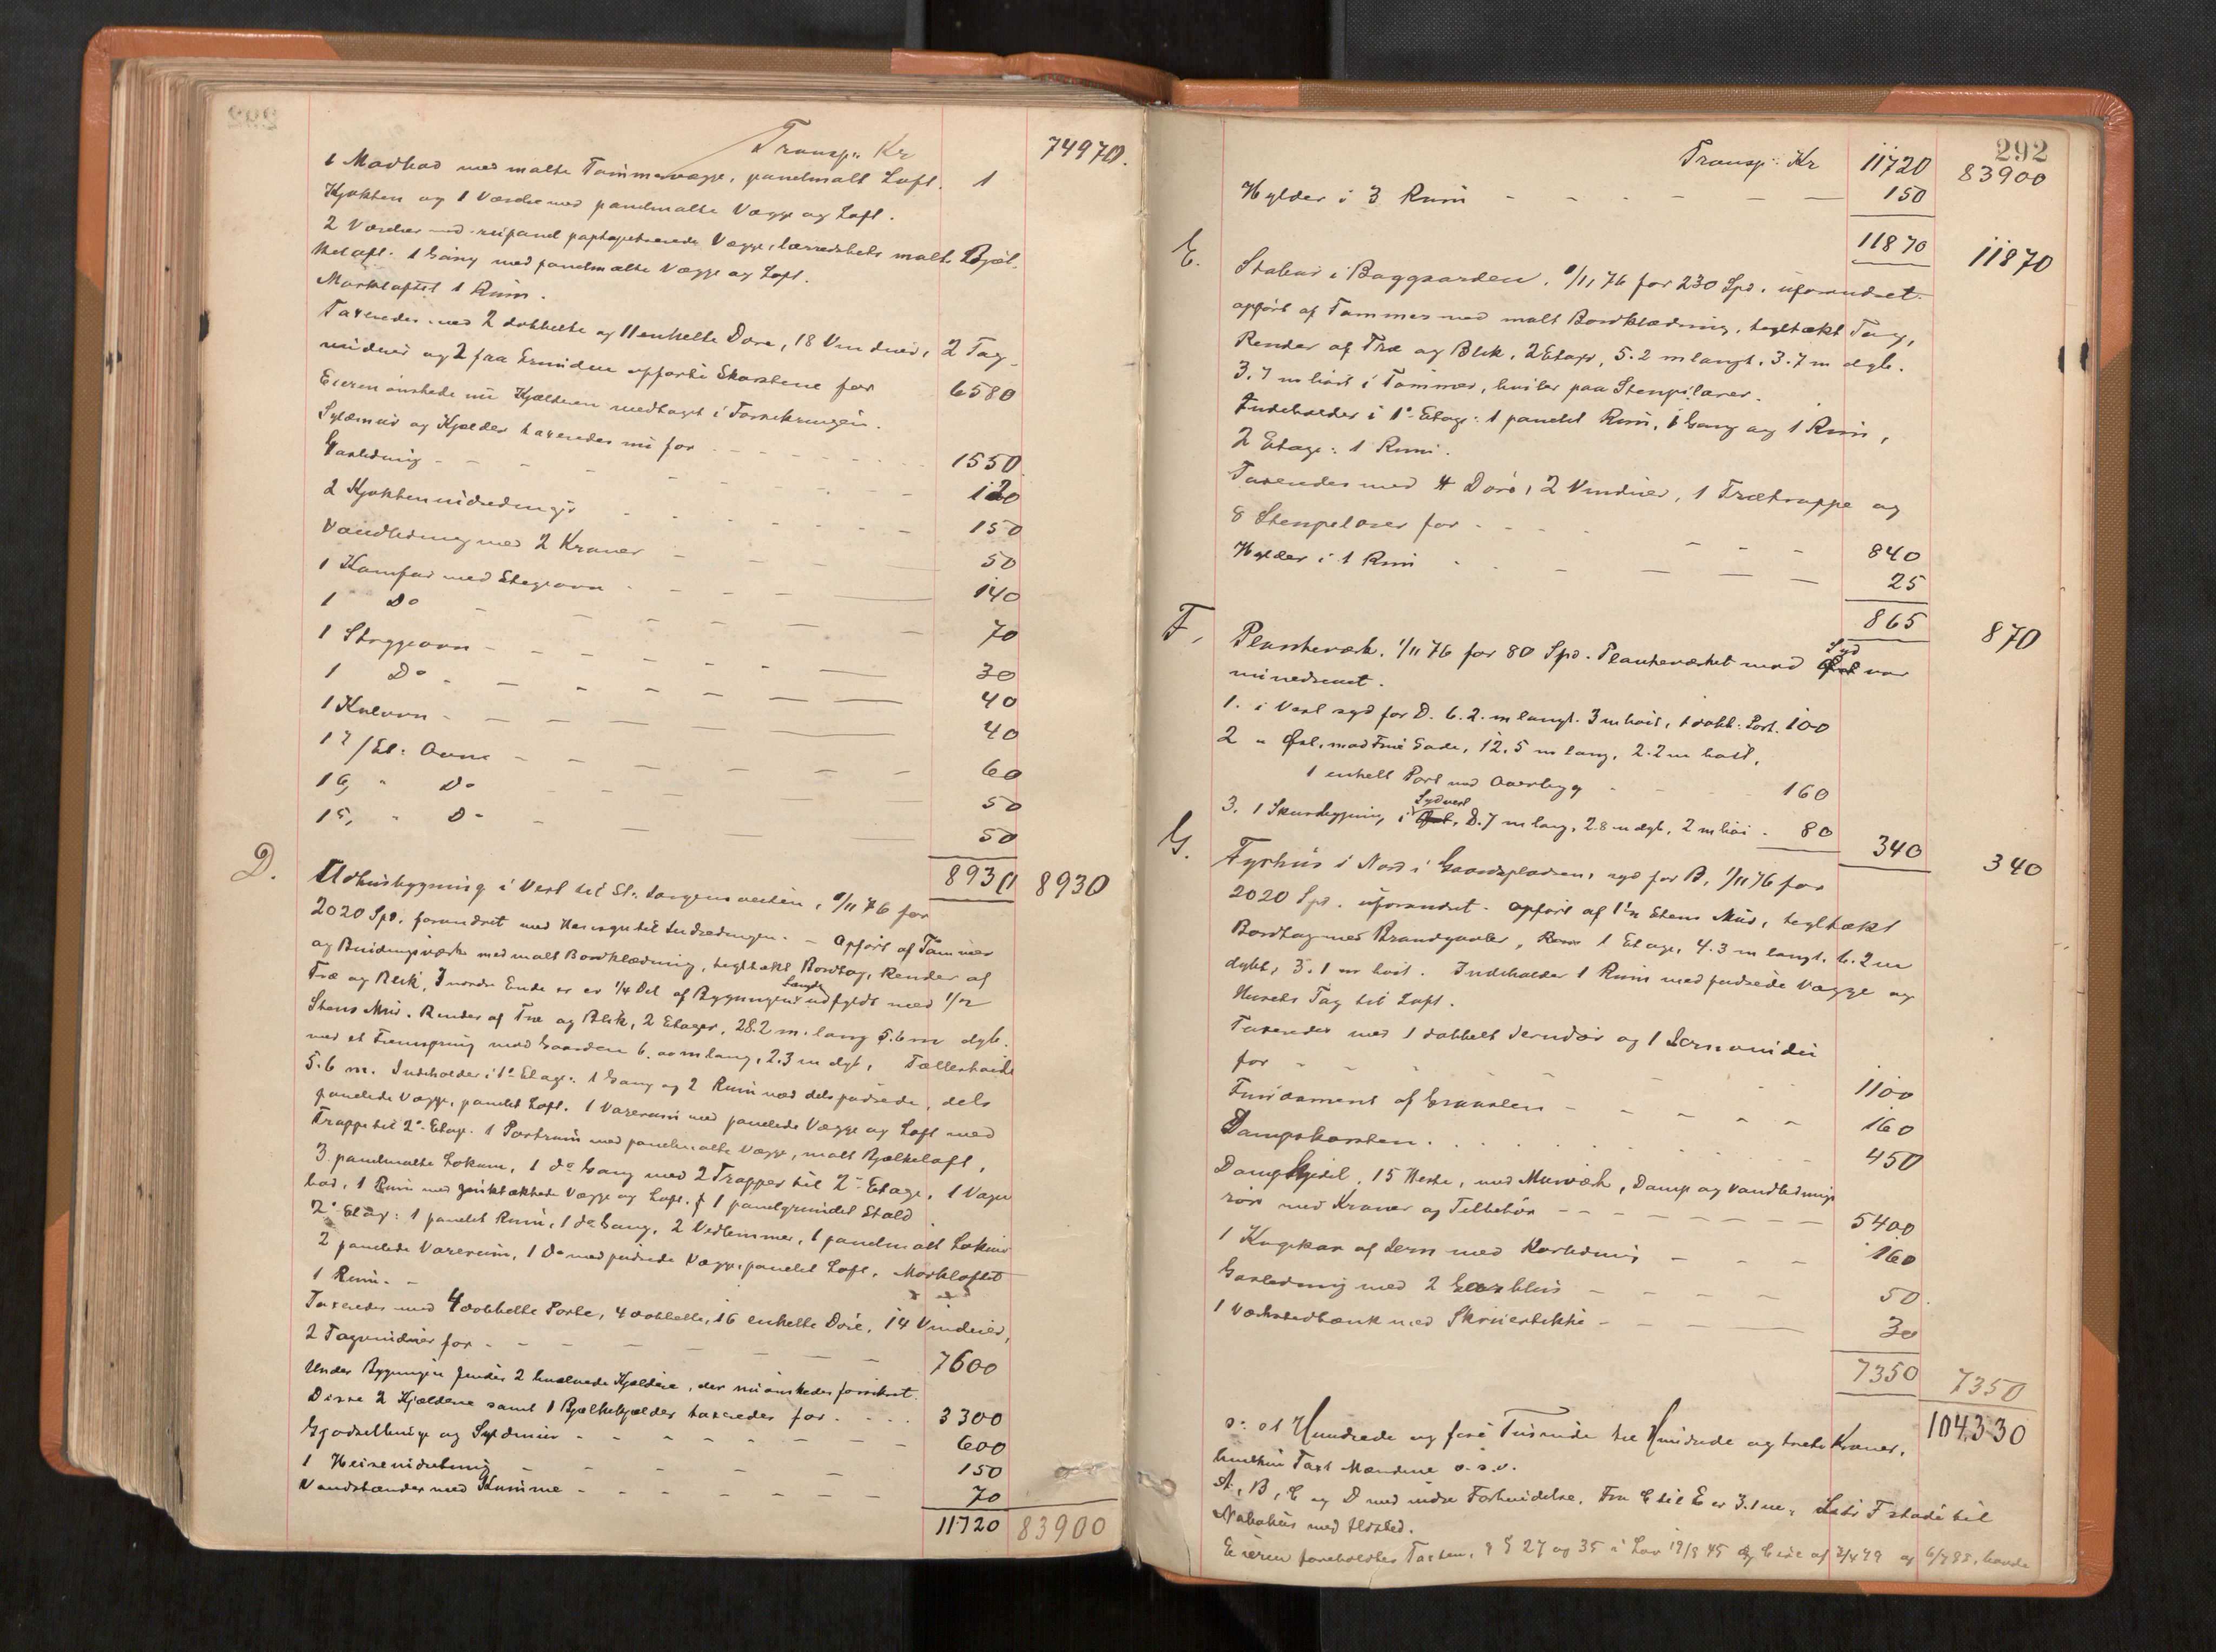 Transp. Kr 74970.
1 Madbod med malte Tømmervægge, panelmalt Loft. 1
Kjøkken og 1 Værelse med panelmalte Vægge og Loft.
2 Værelser med rupanel paptapetserede Vægge, lærredsbetr malt Bjæl-
keloft. 1 Gang med panelmalte Vægge og Loft.
Mørkloftet 1 Rum.
Taxeredes med 2 dobbelte og 11 enkelte Døre, 18 Vinduer, 2 Tag-
vinduer og 2 fra Grunden opførte Skorstene for 6580
Eieren ønskede nu Kjælderen medtaget i Forsikringen.
Syldmur og Kjælder taxeredes nu for 1550
Gasledning 120
2 Kjøkkenindredninger 150
Vandledning med 2 Kraner 50
1 Komfur med Stegeovn 140
1 Do 70
1 Strygeovn 30
1 Do 40
1 Kulovn 40
1 7/Et: Ovne 60
1 6, " Do 50
1 5, " Do 50
8930 8930
D. Udhusbygning i Vest til St. Jørgensveiten, 1/11 76 for
2020 Spd. forandret med Hensyn til Indredningen. - Opført af Tømmer
og Bindingsværk med malt Bordklædning, tegltækt Bordtag, Render af
Træ og Blik, I nordre Ende er er 1/4 Del af Bygningens Længde udfyldt med 1/2
Stens Mur. Render af Træ og Blik, 2 Etager, 28.2 m. lang 5.6 m dyb.
med et Fremspring mod Gaarden 6.00 m lang, 2.3 m dyb, Fælleshøide
5.6 m. Indeholder i 1ste Etage: 1 Gang og 2 Rum med dels pudsede, dels
panelede Vægge, panelet Loft. 1 Varerum med panelede Vægge og Loft med
Trappe til 2. Etage. 1 Portrum med panelmalte Vægge, malt Bjælkeloft,
3 panelmalte Lokum, 1 do Gang med 2 Trapper til 2 Etage, 1 Vogn
bod, 1 Rum med zinktækkede Vægge og Loft. 1 panelgrundet Stald
2. Etage: 1 panelet Rum, 1 do Gang, 2 Vedlemmer, 1 panelmalt Lokum
2 panelede Varerum, 1 Do med pudsede Vægge, panelet Loft. Mørkloftet
1 Rum.
Taxeredes med 4 dobbelte Porte, 4 dobbelte, 16 enkelte Døre, 14 Vinduer,
2 Tagvinduer for 7600
Under Bygningen findes 2 hvælvede Kjældere, der nu ønskedes forsikret.
Disse 2 Kjældere samt 1 Bjælkekjælder taxeredes for 3300
Gjødselbinge og Syldmur 600
1 Heiseindretning 150
Vandstænder med Kumme 70
11720 83900
292
Transp: Kr 11720 83900
Hylder i 3 Rum 150
11870 11870
E. Stabur i Baggaarden, 1/11 76 for 230 Spd. uforandret.
opført af Tømmer med malt Bordklædning, tegltækt Tag,
Render af Træ og Blik, 2 Etager, 5.2 m langt, 3.7 m dybt.
3.7 m høit i Tømmer, hviler paa Stenpilarer.
Indeholder i 1ste Etage: 1 panelet Rum, 1 Gang og 1 Rum,
2 Etage: 1 Rum.
Taxeredes med 4 Døre, 2 Vinduer, 1 Trætrappe og
8 Stenpilarer for 840
Hylder i 1 Rum 25
865 870
F. Plankeværk. 1/11 76 for 80 Spd. Plankeværket mod Syd var
nu nedrevet.
1. i Vest syd for D. 6.2. m langt. 3 m høit, 1 dobb: Port. 100
2 " Øst, mod Frue Gade, 12.5 m lang, 2.2 m høit,
1 enkelt Port med Overbyg 160
3. 1 Skurbygning i Sydvest, D. 7 m lang, 2.8 m dyb, 2 m høi 80
340 340
G. Fyrhus i Nord i Gaardspladsen, syd for B, 1/11 76 for
2020 Spd. uforandret. opført af 1 1/2 Stens Mur, tegltækt
Bordtag med Brandgavler, 1 Etage, 4.3 m langt. 6.2 m
dybt, 3.1 m høit. Indeholder 1 Rum med pudsede Vægge og
Husets Tag til Loft.
Taxeredes med 1 dobbelt Jerndør og 1 Jernvindu
for 1100
Fundament af Graasten 160
Dampskorsten 450
Dampkjedel, 15 Hestes, med Murværk, Damp og Vandlednings
rør med Kraner og Tilbehør 5400
1 Kogekar af Jern med Rørledning 160
Gasledning med 2 Gasblus 50
1 Værkstedbænk med Skruestikke 30
7350 7350
104330
o: et Hundrede og fire Tusinde tre Hundrede og treti Kroner.
hvorhen Taxt Mændene o. s. v.
A, B, C og D med indre Forbindelse. Fra C til E er 3.1 m. Lit: F stødte til
Nabohus med Ildsted.
Eieren foreholdtes Taxten, § 27 og 35 i Lov 19/8 45 og Circ af 3/4 79 og 6/7 88, havde